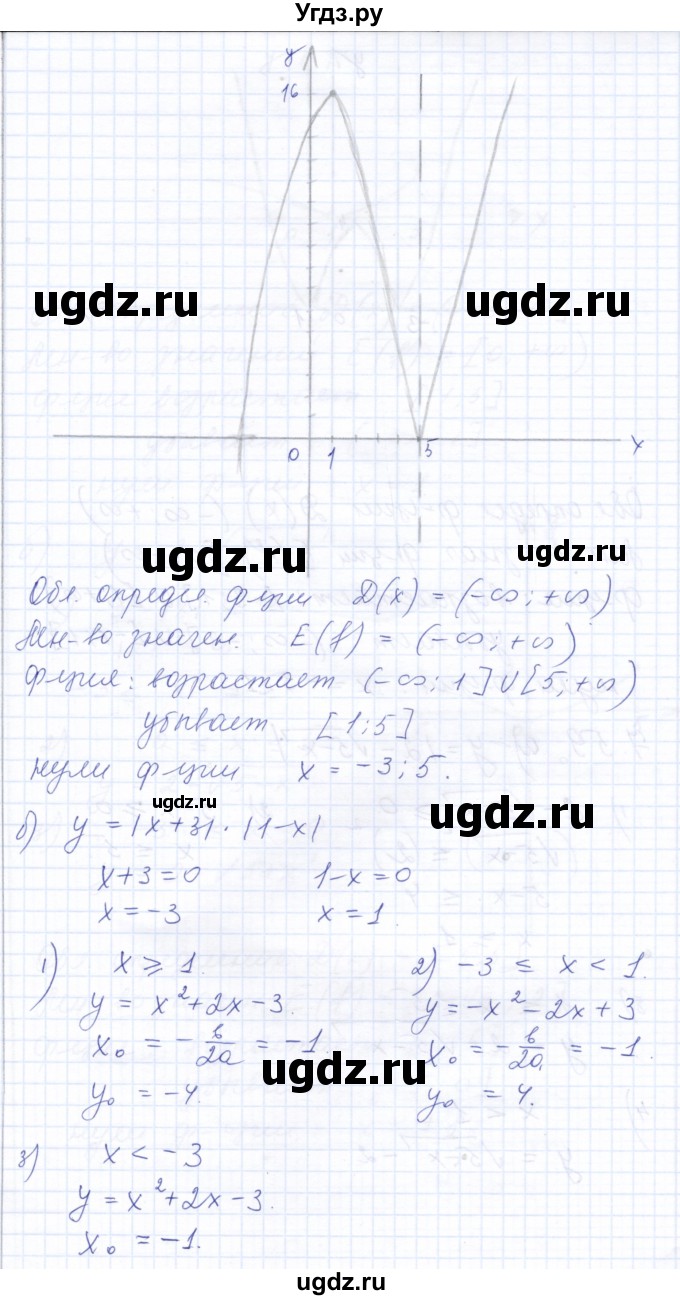 Угдз.ру
y
16
ugdz.ru ugdz.ru
0 1 5 x
ugdz.ru ugdz.ru
Обл. опредл. ф-ции D(x) = (-∞; +∞)
Мн-во значен. E(f) = (-∞; +∞)
ф-ция: возрастает (-∞; 1] ∪ [5; +∞)
убывает [1; 5]
нули ф-ции x = -3; 5.
ugdz.ru ugdz.ru
б) y = |x+3| · |1-x|
x+3=0 1-x=0
x=-3 x=1.
1) x ≥ 1. 2) -3 ≤ x < 1.
y = x²+2x-3. y = -x²-2x+3
x₀ = -в/2a = -1 x₀ = -в/2a = -1.
ugdz.ru
y₀ = -4. y₀ = 4.
3) x < -3
y = x²+2x-3.
x₀ = -1.
ugdz.ru